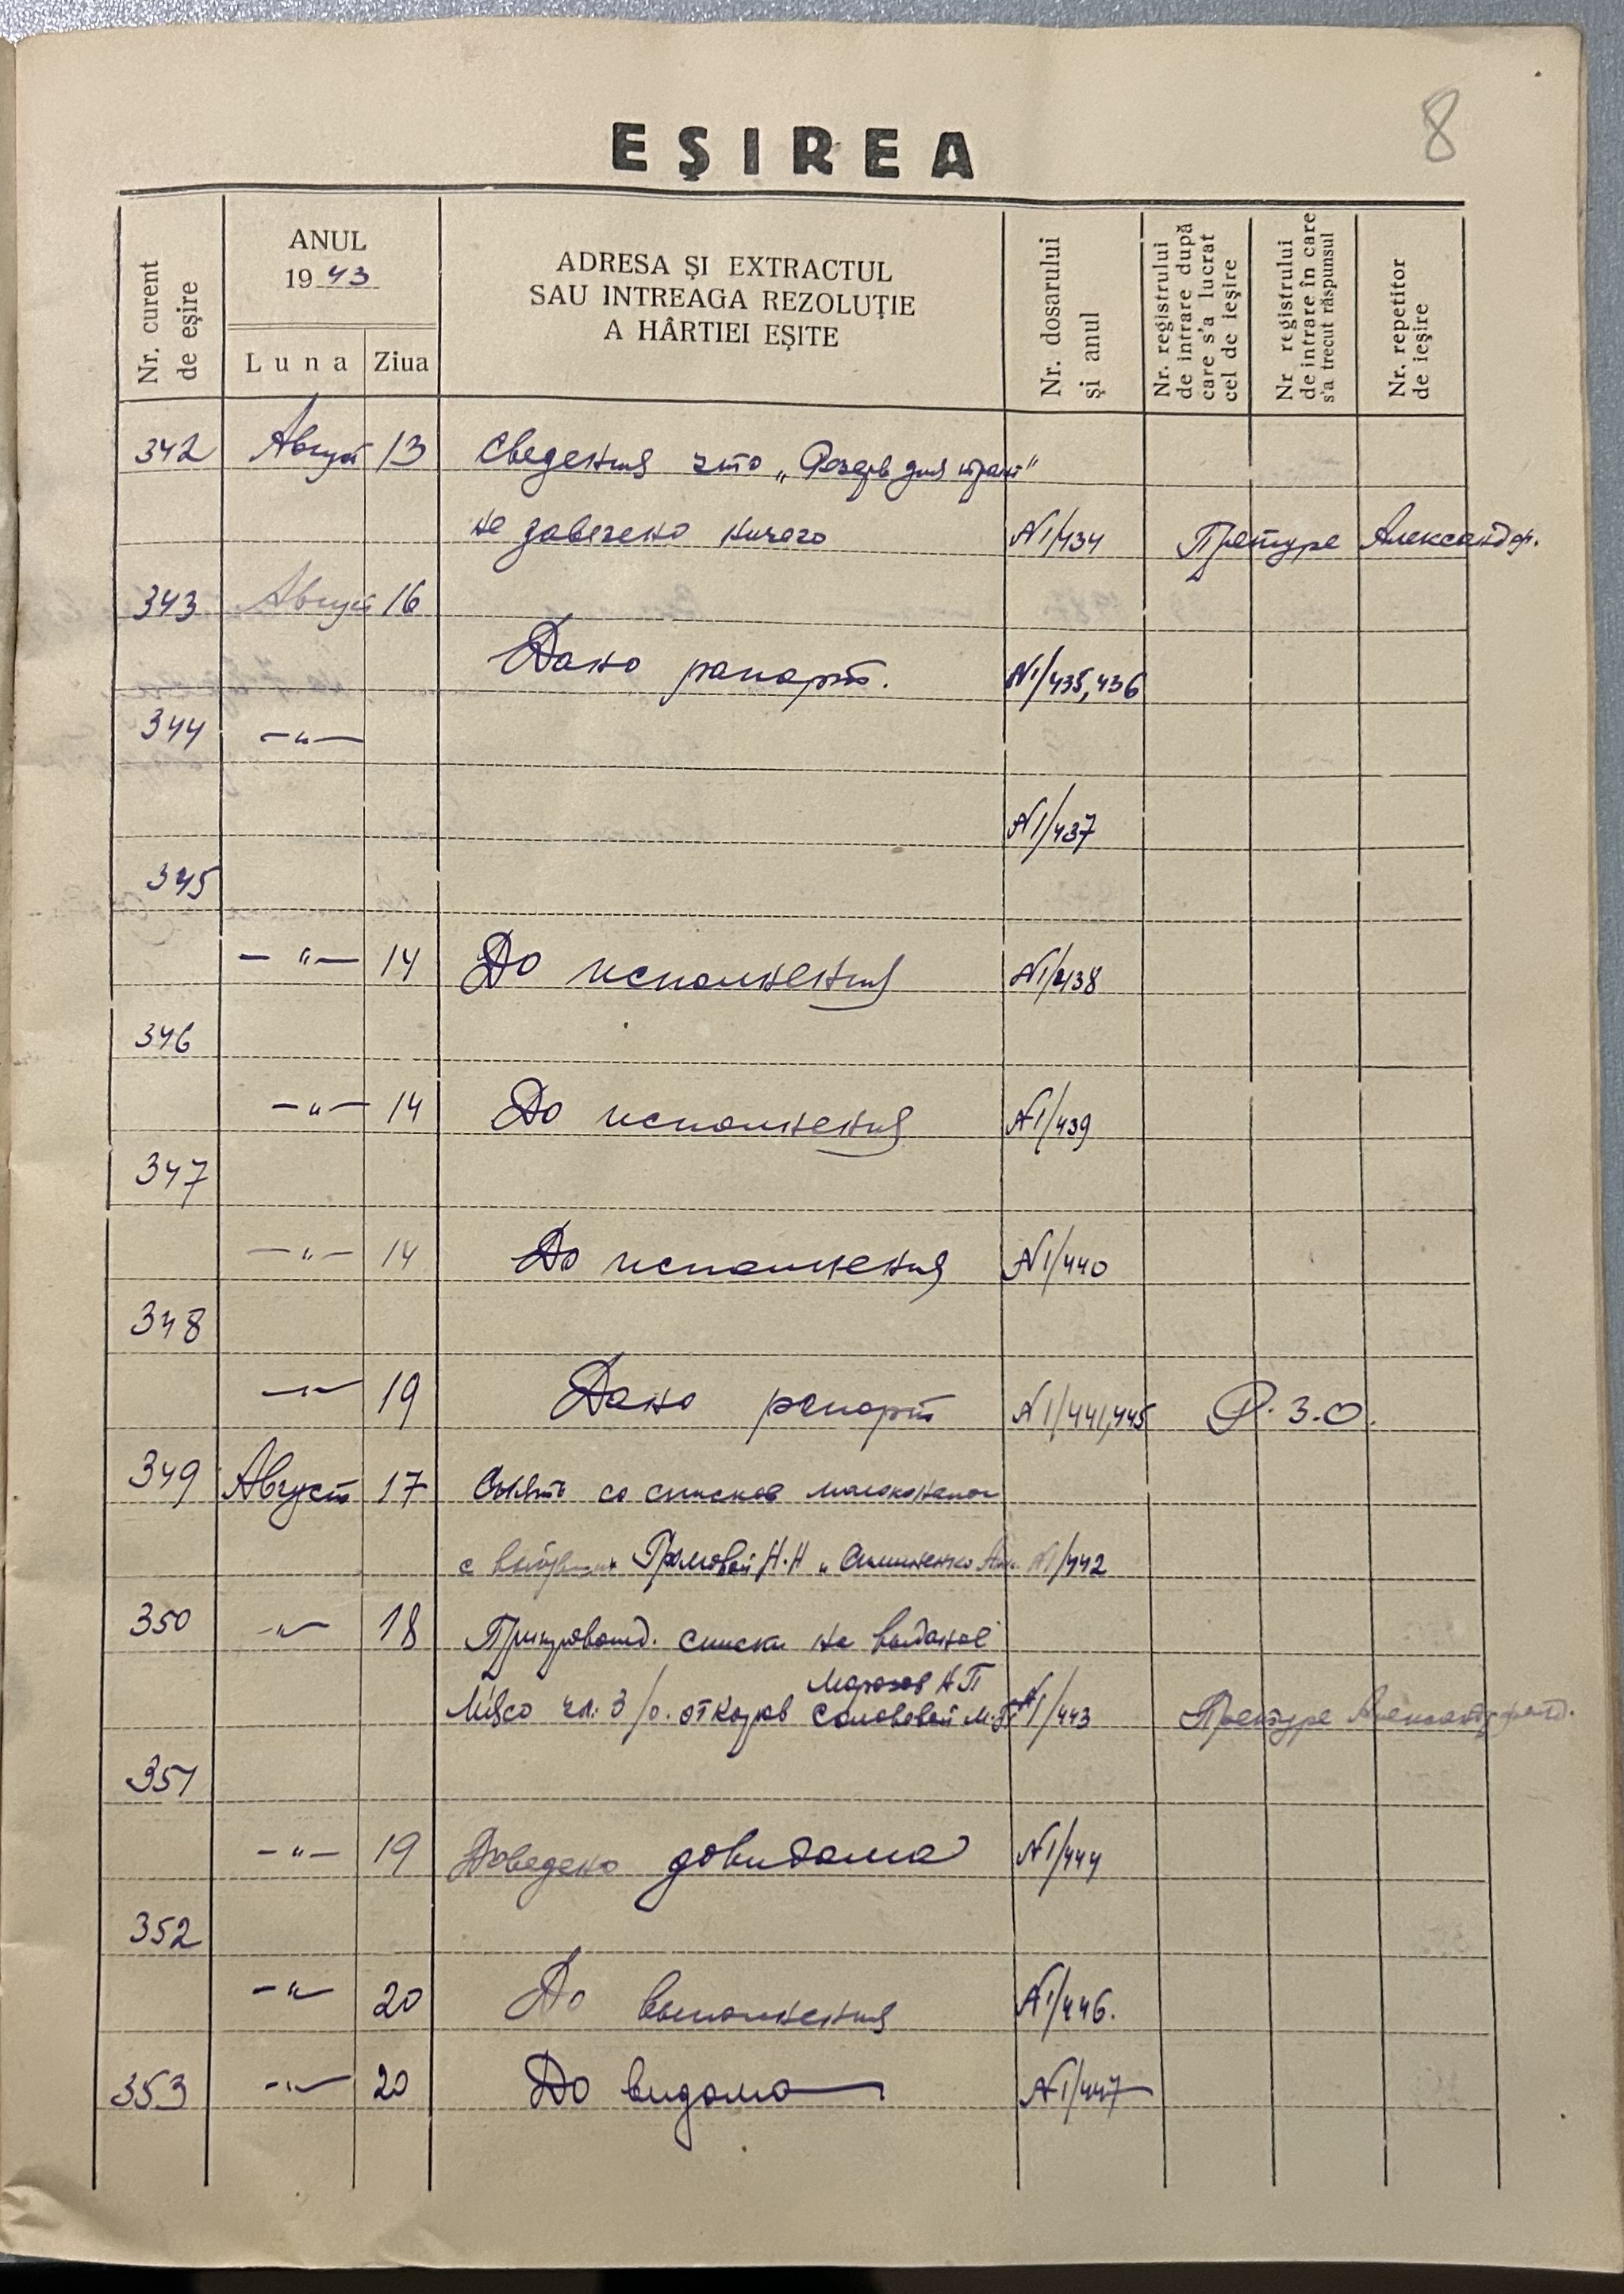 8
EŞIREA
Nr. curent
de eşire
ANUL
1943
Luna
Ziua
ADRESA ŞI EXTRACTUL
SAU INTREAGA REZOLUŢIE
A HÂRTIEI EŞITE
Nr. dosarului
şi anul
Nr. registrului
de intrare după
care s'a lucrat
cel de ieşire
Nr registrului
de intrare în care
s'a trecut răspunsul
Nr. repetitor
de ieşire
342 Август 13 Сведения что „Резерв для
не завезено ничего N1/434 Претуре Александр.
343 Август 16
Дано рапорт. N1/435,436
344 —"—
N1/437
345
—"— 14 До исполнения N1/438
346
—"— 14 До исполнения N1/439
347
—"— 14 До исполнения N1/440
348
—"— 19 Дано рапорт N1/441,445 Р.З.О.
349 Август 17 Снять со списков
с Громовой Н.Н и N1/442
350 —"— 18 списки на
Морозов Н П
Мясо чл. з/о. от Соловьевой М.П N1/443 Претуре
351
—"— 19 Доведено довидома N1/444
352
—"— 20 До выполнения N1/446.
353 —"— 20 До видома N1/447